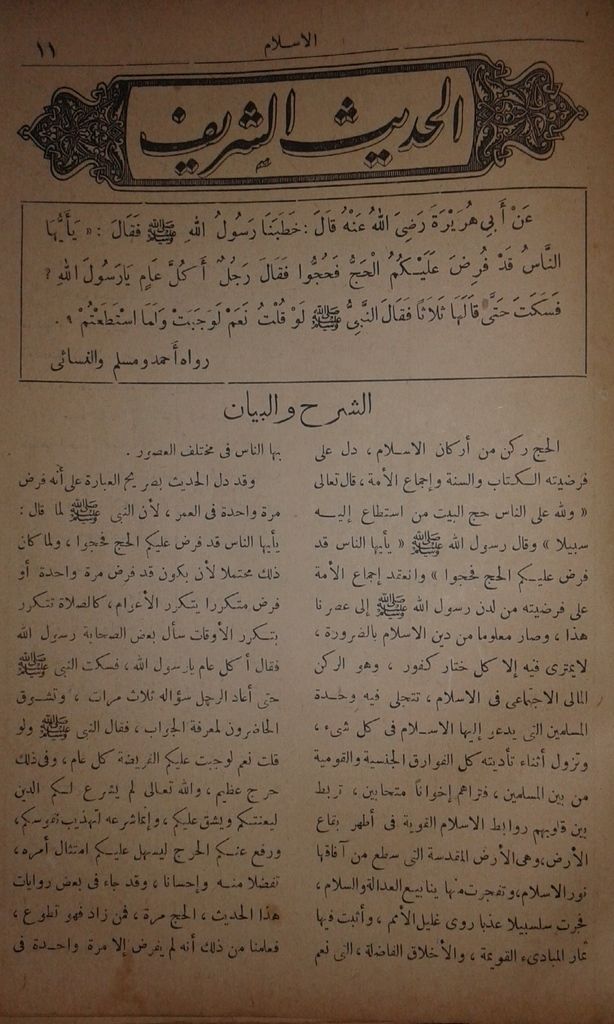 الاسلام
١١
الحديث الشريف
عَنْ أَبِي هُرَيْرَةَ رَضِيَ اللهُ عَنْهُ قَالَ : خَطَبَنَا رَسُولُ اللهِ ﷺ فَقَالَ : « يَأَيُّهَا
النَّاسُ قَدْ فُرِضَ عَلَيْكُمُ الْحَجُّ فَحُجُّوا فَقَالَ رَجُلٌ أَكُلَّ عَامٍ يَارَسُولَ اللهِ ؟
فَسَكَتَ حَتَّى قَالَهَا ثَلَاثًا فَقَالَ النَّبِيُّ ﷺ لَوْ قُلْتُ نَعَمْ لَوَجَبَتْ وَلَمَا اسْتَطَعْتُمْ » .
رواه أحمد ومسلم والنسائى
الشرح والبيان
الحج ركن من أركان الاسلام ، دل على
فرضيته الكتاب والسنة وإجماع الأمة ، قال تعالى
« ولله على الناس حج البيت من استطاع إليه
سبيلا » وقال رسول الله ﷺ « يأيها الناس قد
فرض عليكم الحج فحجوا » وانعقد إجماع الأمة
على فرضيته من لدن رسول الله ﷺ إلى عصرنا
هذا ، وصار معلوما من دين الاسلام بالضرورة ،
لايمترى فيه إلا كل ختار كفور ، وهو الركن
المالى الاجتماعى فى الاسلام ، تتجلى فيه وحدة
المسلمين التى يدعو إليها الاسلام فى كل شىء ،
وتزول أثناء تأديته كل الفوارق الجنسية والقومية
من بين المسلمين ، فتراهم إخوانًا متحابين ، تربط
بين قلوبهم روابط الاسلام القوية فى أطهر بقاع
الأرض ، وهى الأرض المقدسة التى سطع من آفاقها
نور الاسلام ، وتفجرت منها ينابيع العدالة والسلام ،
فجرت سلسبيلا عذبا روى غليل الأمم ، وأثبت فيها
ثمار المبادىء القويمة ، والأخلاق الفاضلة ، التى نعم
بها الناس فى مختلف العصور .
وقد دل الحديث بصريح العبارة على أنه فرض
مرة واحدة فى العمر ، لأن النبى ﷺ لما قال :
يأيها الناس قد فرض عليكم الحج فحجوا ، ولما كان
ذلك محتملا لأن يكون قد فرض مرة واحدة أو
فرض متكررا بتكرر الأعوام ، كالصلاة تتكرر
بتكرر الأوقات سأل بعض الصحابة رسول الله
فقال أكل عام يارسول الله ، فسكت النبى ﷺ
حتى أعاد الرجل سؤاله ثلاث مرات ، وتشوق
الحاضرون لمعرفة الجواب ، فقال النبى ﷺ ولو
قلت نعم لوجبت عليكم الفريضة كل عام ، وفى ذلك
حرج عظيم ، والله تعالى لم يشرع لكم الدين
ليعنتكم ويشق عليكم ، وإنما شرعه لتهذيب نفوسكم ،
ورفع عنكم الحرج ليسهل عليكم امتثال أمره ،
تفضلا منه وإحسانا ، وقد جاء فى بعض روايات
هذا الحديث ، الحج مرة ، فمن زاد فهو تطوع ،
فعلمنا من ذلك أنه لم يفرض إلا مرة واحدة فى